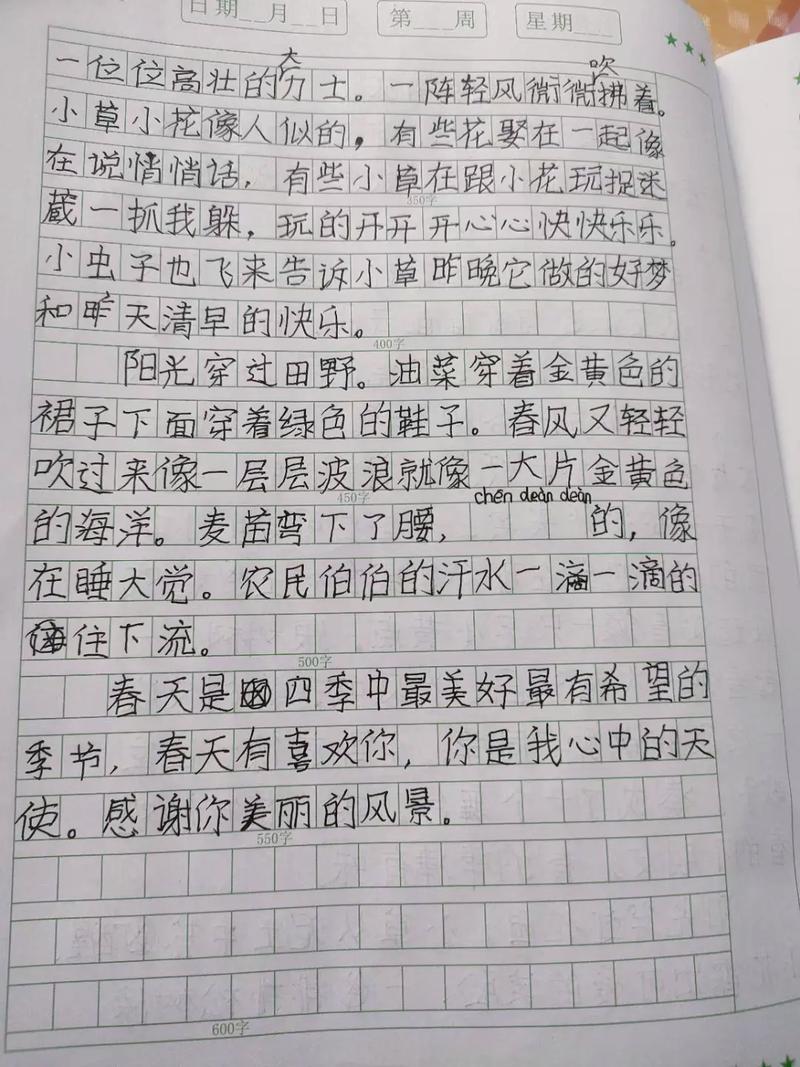 日期__月__日 第___周 星期___
大 吹
一位位高壮的力士。一阵轻风微微拂着。
小草小花像人似的，有些花娶在一起像
在说悄悄话，有些小草在跟小花玩捉迷
350字
蔵一抓我躲，玩的开开开心心快快乐乐。
小虫子也飞来告诉小草昨晚它做的好梦
和昨天清早的快乐。
400字
阳光穿过田野。油菜穿着金黄色的
裙子下面穿着绿色的鞋子。春风又轻轻
吹过来像一层层波浪就像一大片金黄色
450字
chēn deàn deàn
的海洋。麦苗弯下了腰， 的，像
在睡大觉。农民伯伯的汗水一滴一滴的
住下流。
500字
春天是四季中最美好最有希望的
季节，春天有喜欢你，你是我心中的天
使。感谢你美丽的风景。
550字
600字